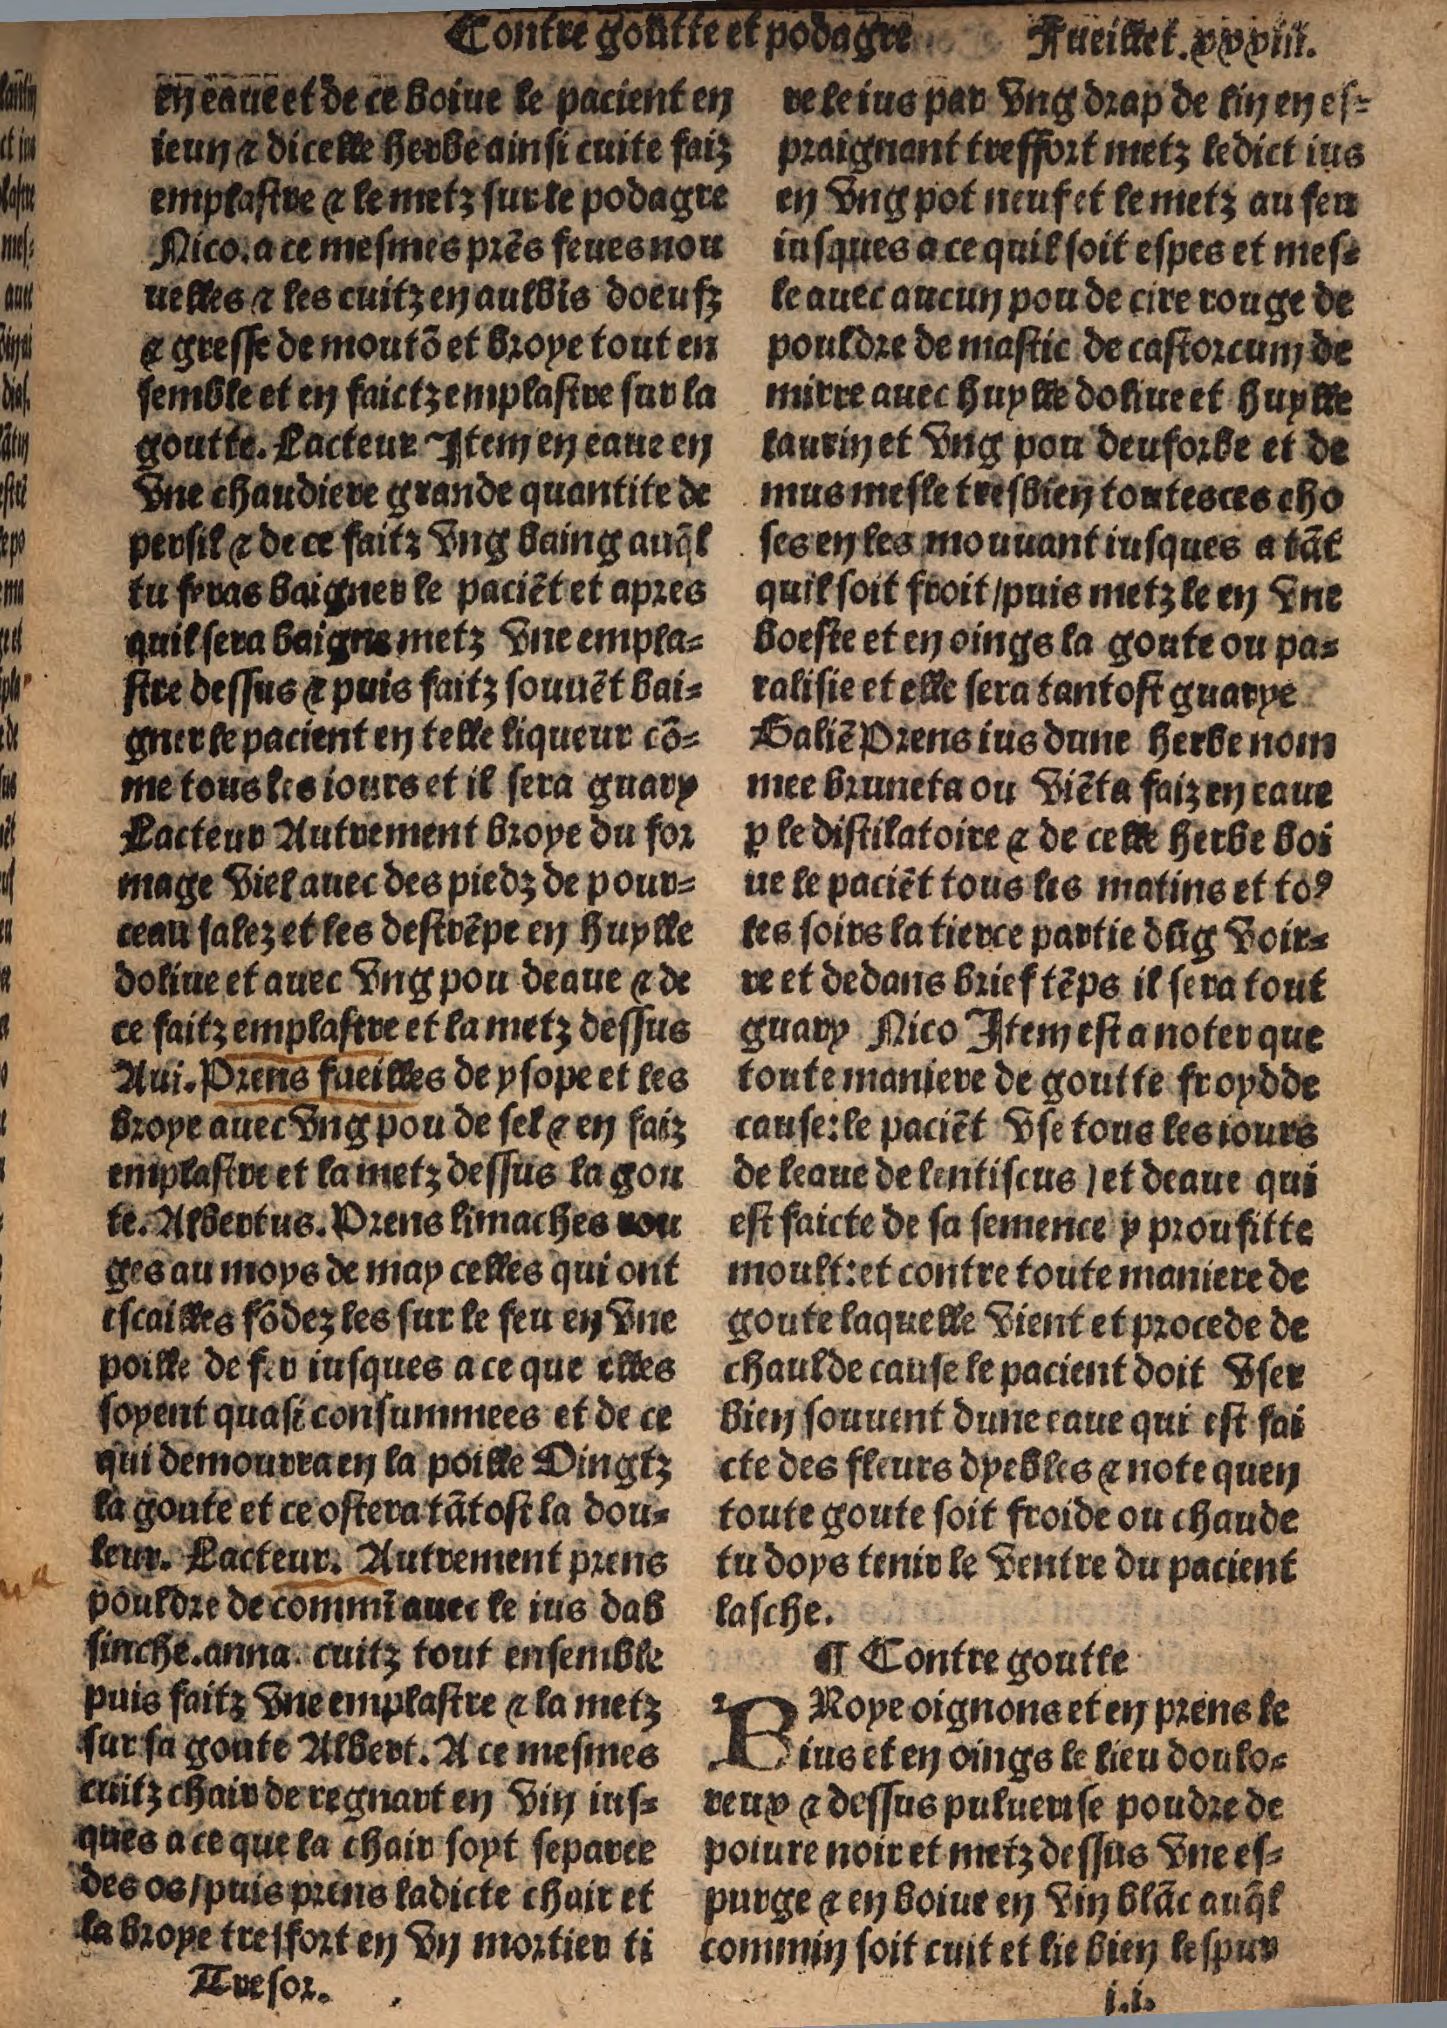 Contre goutte et podagre Fueillet.xxxiii.
en eaue et de ce boiue le pacient en
ieun & dicelle herbe ainsi cuite faiz
emplastre & le metz sur le podagre
Nico. a ce mesmes prẽs feues nou
uelles & les cuitz en aulbis doeufz
& gresse de moutõ et broye tout en
semble et en faictz emplastre sur la
goutte. Lacteur Item en eaue en
vne chaudiere grande quantite de
persil & de ce faitz vng baing auq̃l
tu feras baigner le paciẽt et apres
quil sera baigne metz vne empla-
stre dessus & puis faitz souuẽt bai-
gner le pacient en telle liqueur cõ-
me tous les iours et il sera guary
Lacteur Autrement broye du for
mage viel auec des piedz de pour-
ceau salez et les destrẽpe en huylle
doliue et auec vng pou deaue & de
ce faitz emplastre et la metz dessus
Aui. Prens fueilles de ysope et les
broye auec vng pou de sel & en faiz
emplastre et la metz dessus la gou
te. Albertus. Prens limaches rou
ges au moys de may celles qui ont
escailles fõdez les sur le feu en vne
poille de fer iusques a ce que elles
soyent quasi consummees et de ce
qui demourra en la poille Oingtz
la goute et ce ostera tãtost la dou-
leur. Lacteur. Autrement prens
pouldre de commĩ auec le ius dab
sinche. anna. cuitz tout ensemble
puis faitz vne emplastre & la metz
sur sa goute Albert. A ce mesmes
cuitz chair de regnart en vin ius-
ques a ce que la chair soyt separee
des os/puis prens ladicte chair et
la broye tresfort en vn mortier ti
Tresor.
re le ius par vng drap de lin en es-
praignant treffort metz ledict ius
en vng pot neuf et le metz au feu
iusques a ce quil soit espes et mes-
le auec aucun pou de cire rouge de
pouldre de mastic de castorcum de
mirre auec huylle doliue et huylle
laurin et vng pou deuforbe et de
mus mesle tresbien toutes ces cho
ses en les mouuant iusques a tãt
quil soit froit/puis metz le en vne
boeste et en oings la goute ou pa-
ralisie et elle sera tantost guarye
Galiẽ Prens ius dune herbe nom
mee bruneta ou viẽta faiz en eaue
ꝑ le distilatoire & de celle herbe boi
ue le paciẽt tous les matins et toꝰ
les soirs la tierce partie dũg voir-
re et dedans brief tẽps il sera tout
guary Nico Item est a noter que
toute maniere de goutte froydde
cause: le paciẽt vse tous les iours
de leaue de lentiscus/et deaue qui
est faicte de sa semence y proufitte
moult: et contre toute maniere de
goute laquelle vient et procede de
chaulde cause le pacient doit vser
bien souuent dune eaue qui est fai
cte des fleurs dyebles & note quen
toute goute soit froide ou chaude
tu doys tenir le ventre du pacient
lasche.
¶ Contre goutte
BRoye oignons et en prens le
ius et en oings le lieu doulo-
reux & dessus puluerise poudre de
poiure noir et metz dessus vne es-
purge & en boiue en vin blãc auq̃l
commin soit cuit et lie bien lespur
i.i.